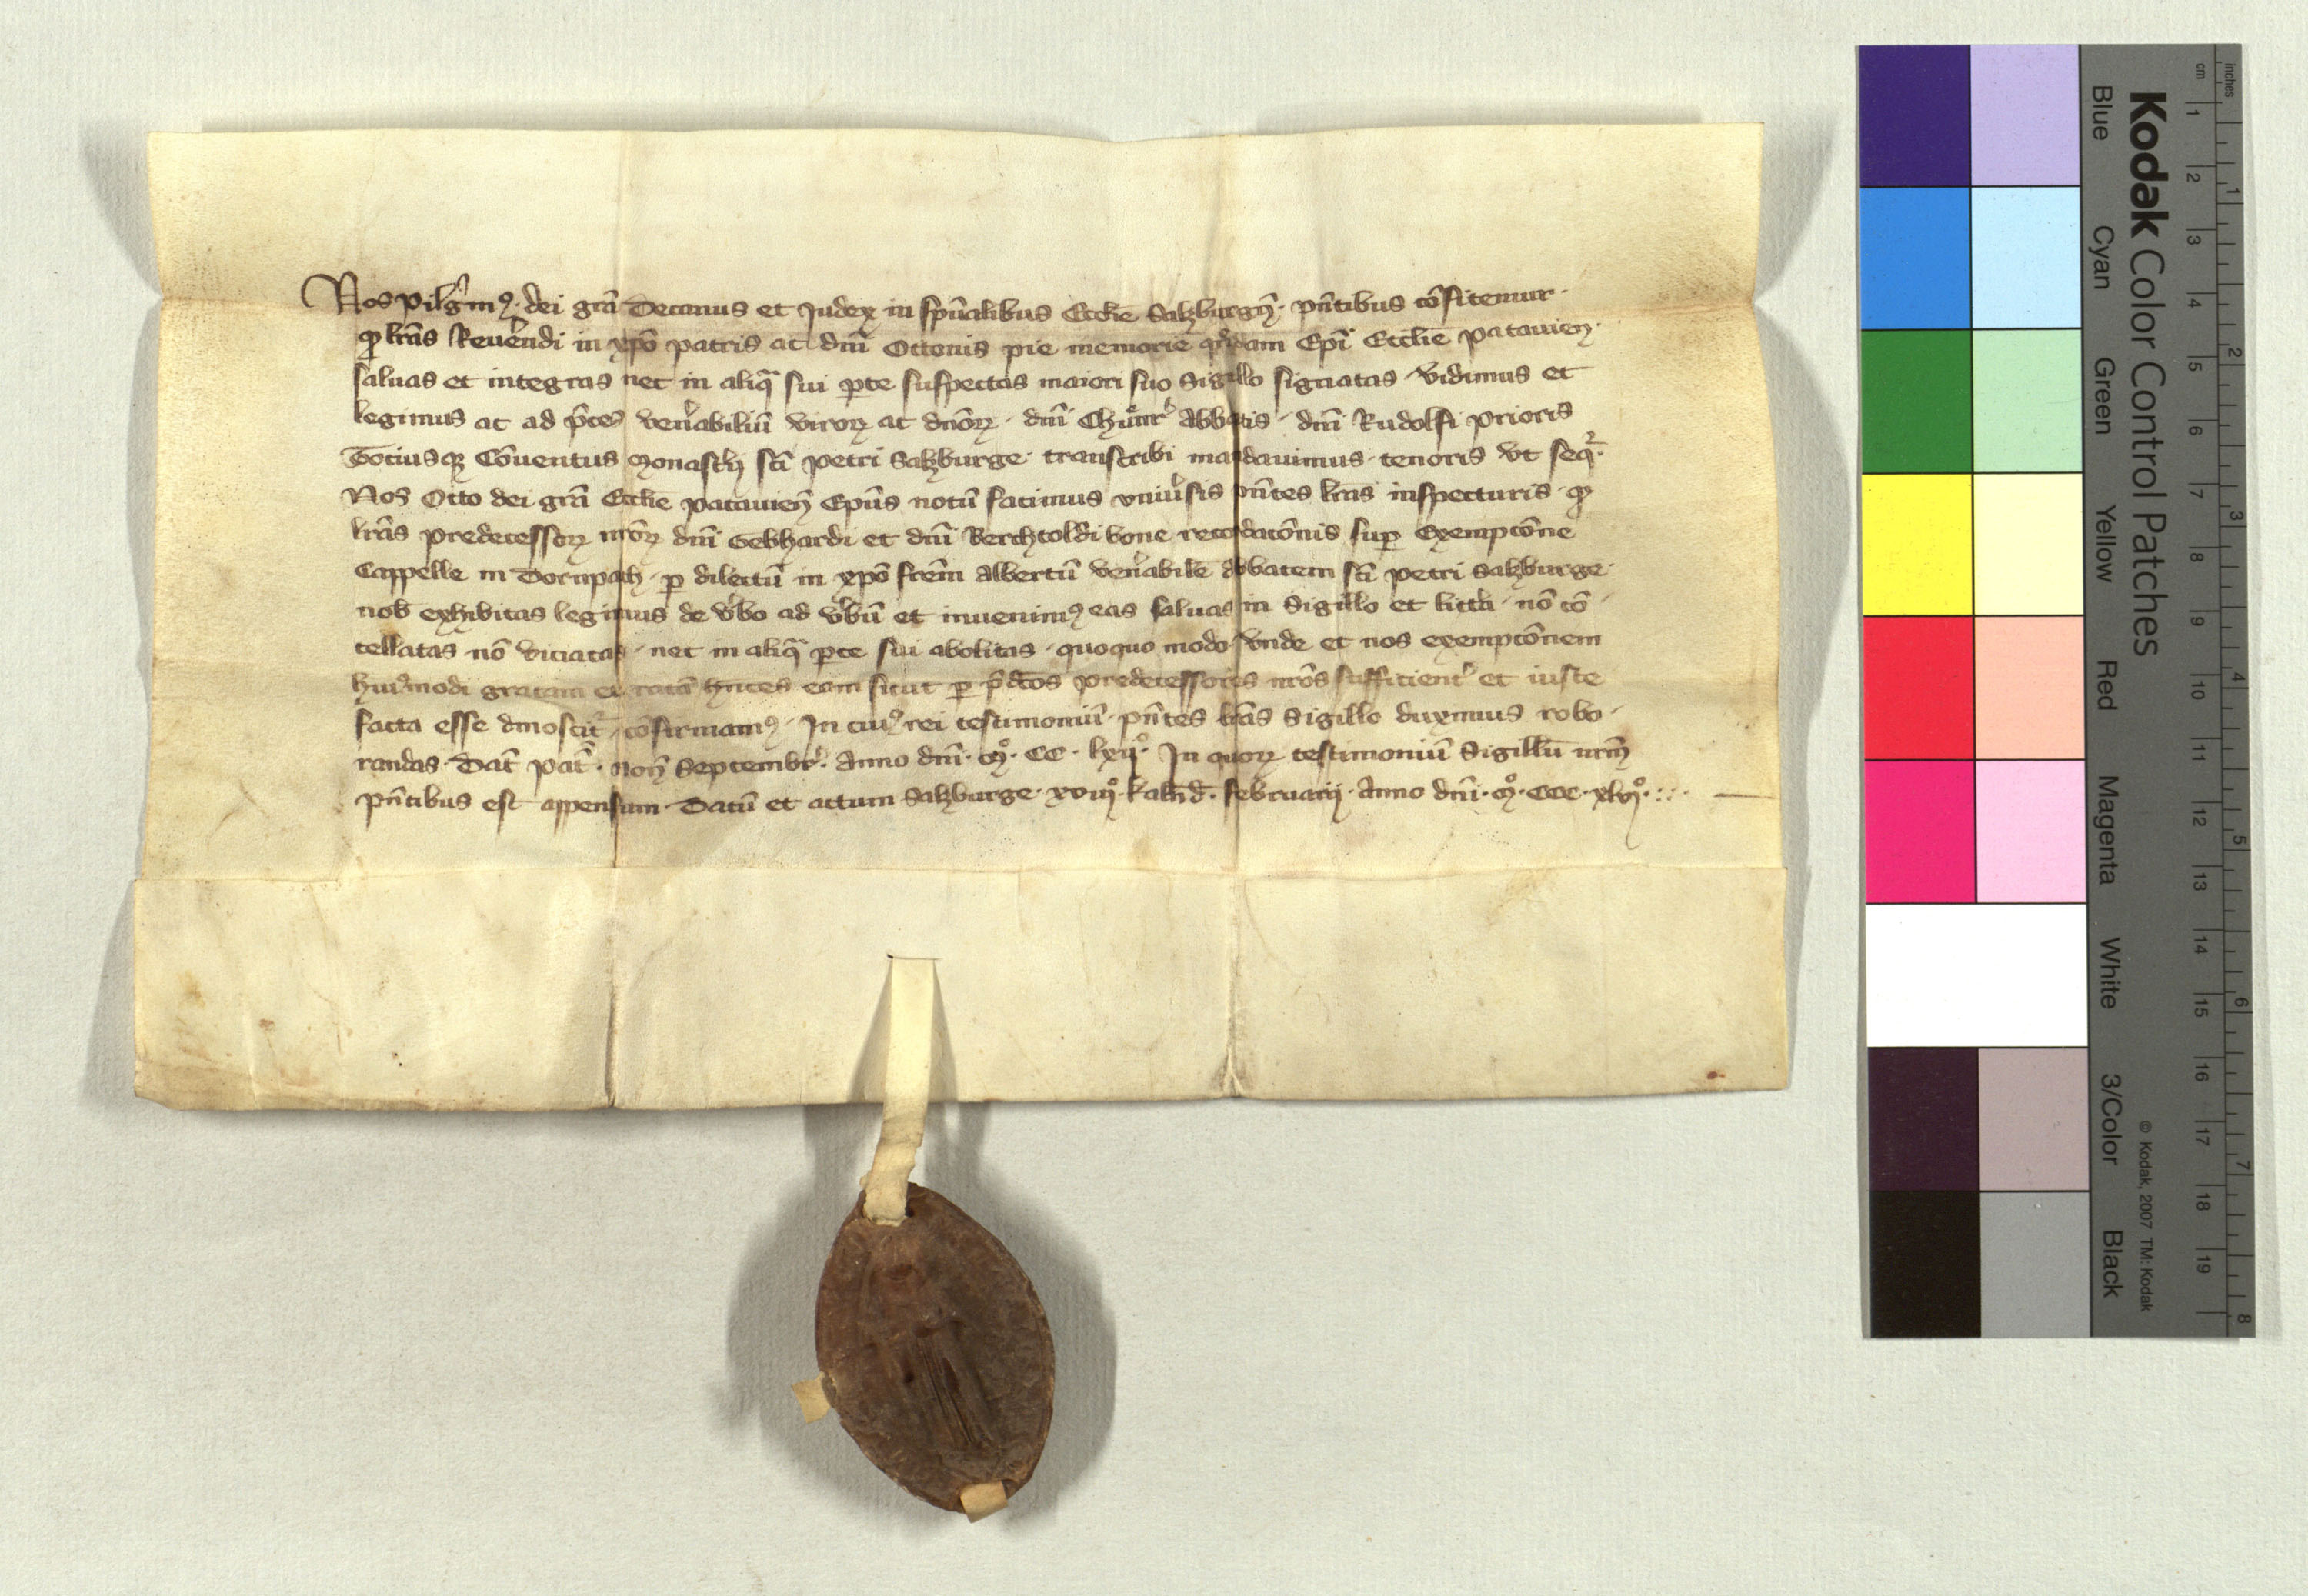 Nos pilg̾imꝰ · dei gr̄a Decanus et Judex in sp̄ualibus Eccl̄ie Salczburgn̄ · p̄ntibus cōfitemur ·
ꝙ l̄ras Reuēndi in xp̄o patris ac dn̄i Ottonis pie memorie qͦndam Ep̄i Eccl̄ie patauien̄ ·
saluas et integras nec in aliqᷓ sui ꝑte suspectas maiori suo Sigillo signatas · vidimus et
legimus ac ad p̄ces ven̾abiliū viroꝝ ac dn̄oꝝ · dn̄i Chůnr̾ Abbatis · dn̄i Rudolfi prioris
Totiusqꝫ Cōuentus monast̾ij sc̄i petri Salczburge · transcribi mandauimus · tenoris vt seqͬ ·
Nos Otto dei gr̄a Eccl̄ie patauien̄ Ep̄us notū facimus vniu̾sis p̄ntes l̄ras inspecturis · ꝙ
l̄ras predecessoꝝ nr̄oꝝ dn̄i Gebhardi et dn̄i Berchtoldi bone recordacōnis suꝑ Exempcōne
Cappelle in Dornpach · ꝑ dilectū in xp̄o fr̄em Albertū ven̾abilē abbatem sc̄i petri Salczburge ·
nob̾ exhibitas legimus de v̾bo ad v̾bū et inuenimꝰ eas saluas in Sigillo et litt̾a · nō cō ·
cellatas nō viciatas · nec in aliqᷓ ꝑte sui abolitas · quoquo modo · vnde et nos exempcōnem
huiꝰmodi gratam et ratā hn̄tes eam sicut ꝑ p̄dc̄os predecessores nr̄os sufficient̾ et iuste
facta esse dinoscit̾ · cōfirmamꝰ · In cuiꝰ rei testimoniū · p̄ntes l̄ras Sigillo duximus robo ·
randas · Dat̄ pat̄ · non̄ Septembr̾ · Anno dn̄i · mͦ · CC · lxijͦ · In quoꝝ testimoniū Sigillū nr̄m
p̄ntibus est appensum · Datū et actum Salczburge · xviijͦ · kaln̄d · februarij · Anno dn̄i · mͦ · CCC · xlvjͦ · : :
Kodak Color Control Patches
Blue Cyan Green Yellow Red Magenta White 3/Color Black
© Kodak, 2007 TM: Kodak
cm 1 2 3 4 5 6 7 8 9 10 11 12 13 14 15 16 17 18 19
inches 1 2 3 4 5 6 7 8